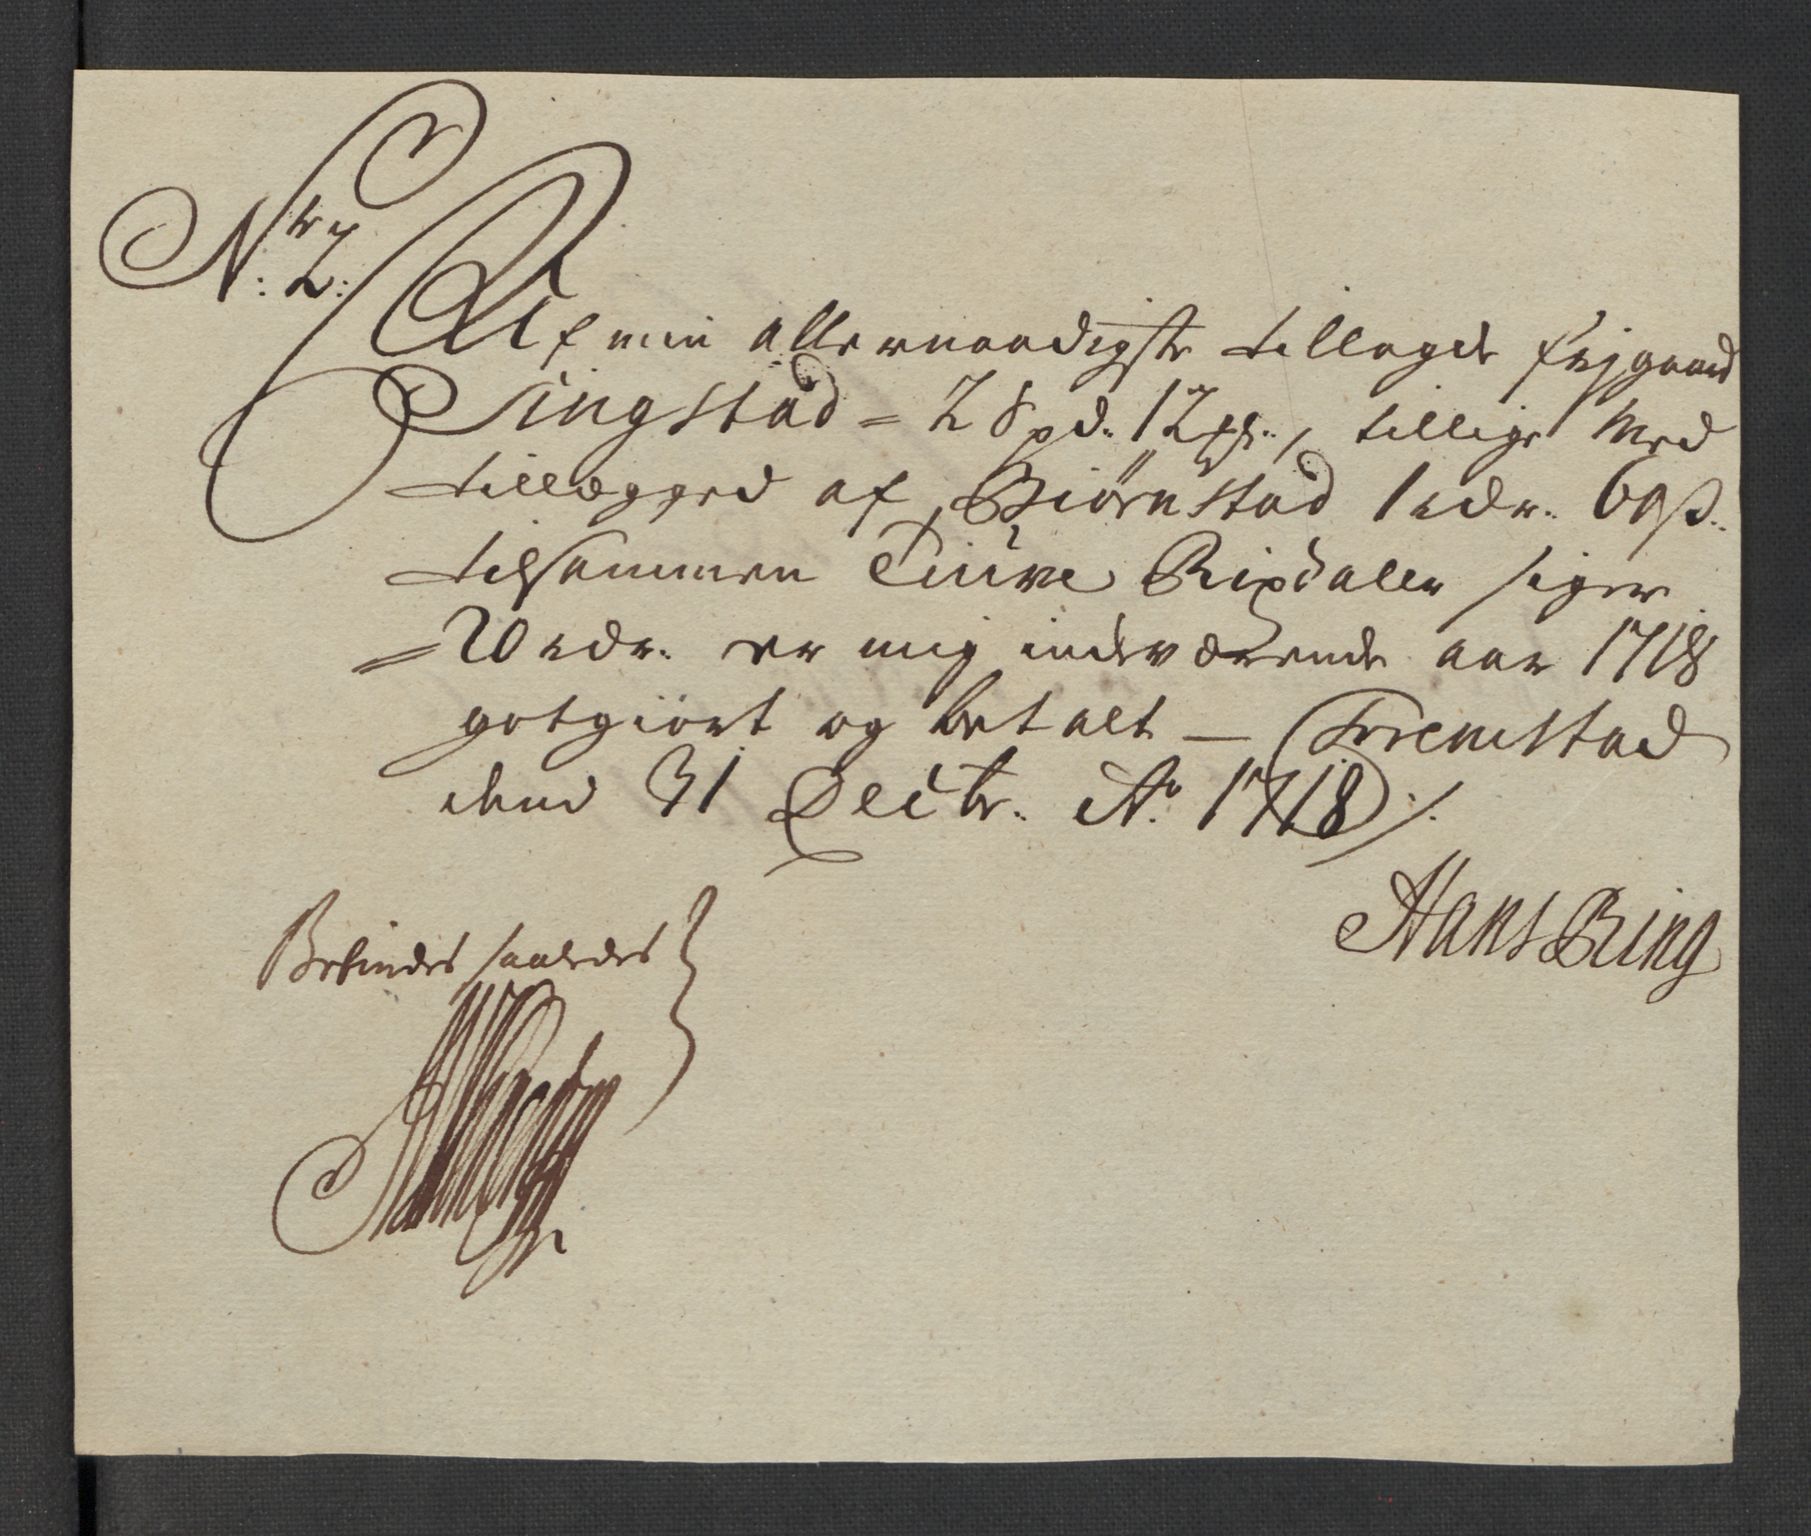 Nr. 2.
Af min allernaadigste tillagde frjgaard
Singstad = 2 Spd. 12 mk., tillige Med
tillægged af Biörnstad 1 rdr. 60 ß.
tilsammen Tiuve Rixdaler siger
= 20 rdr. er mig indeværende aar 1718
gotgiort og betalt — Tremstad
dend 31 Decbr. Ao. 1718 ./.
Hans Bing
Befindes saaledes